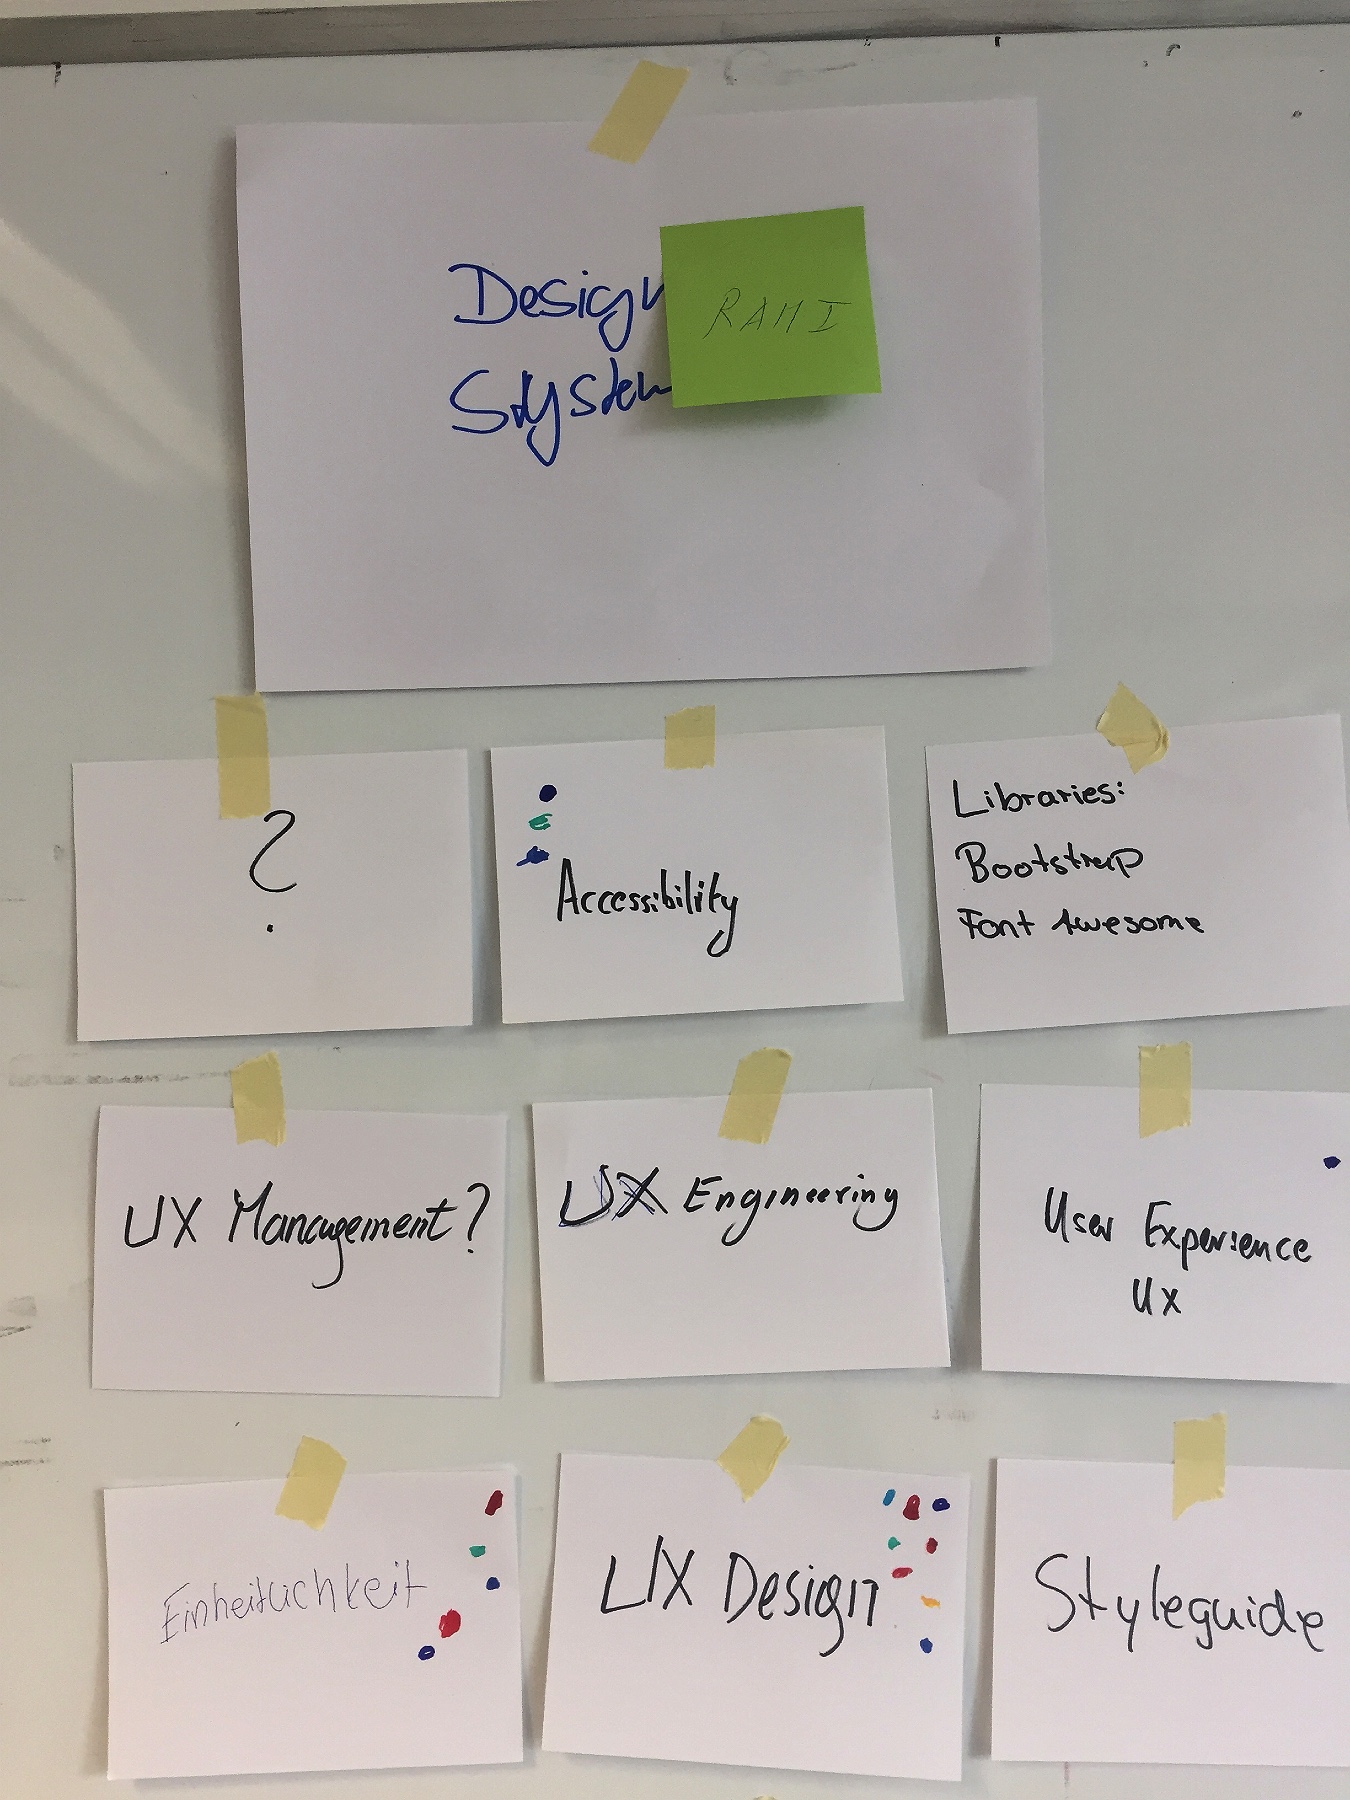 Design
System
RAMI
?
Accessibility
Libraries:
Bootstrap
Font Awesome
UX Management?
UX Engineering
User Experience
UX
Einheitlichkeit
UX Design
Styleguide